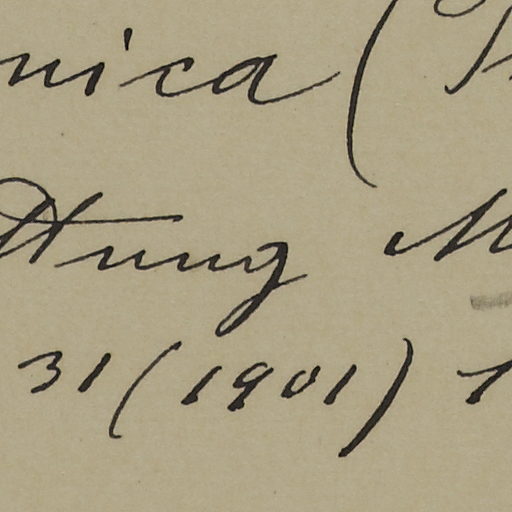 nica (
Hung M
31 (1901) 1